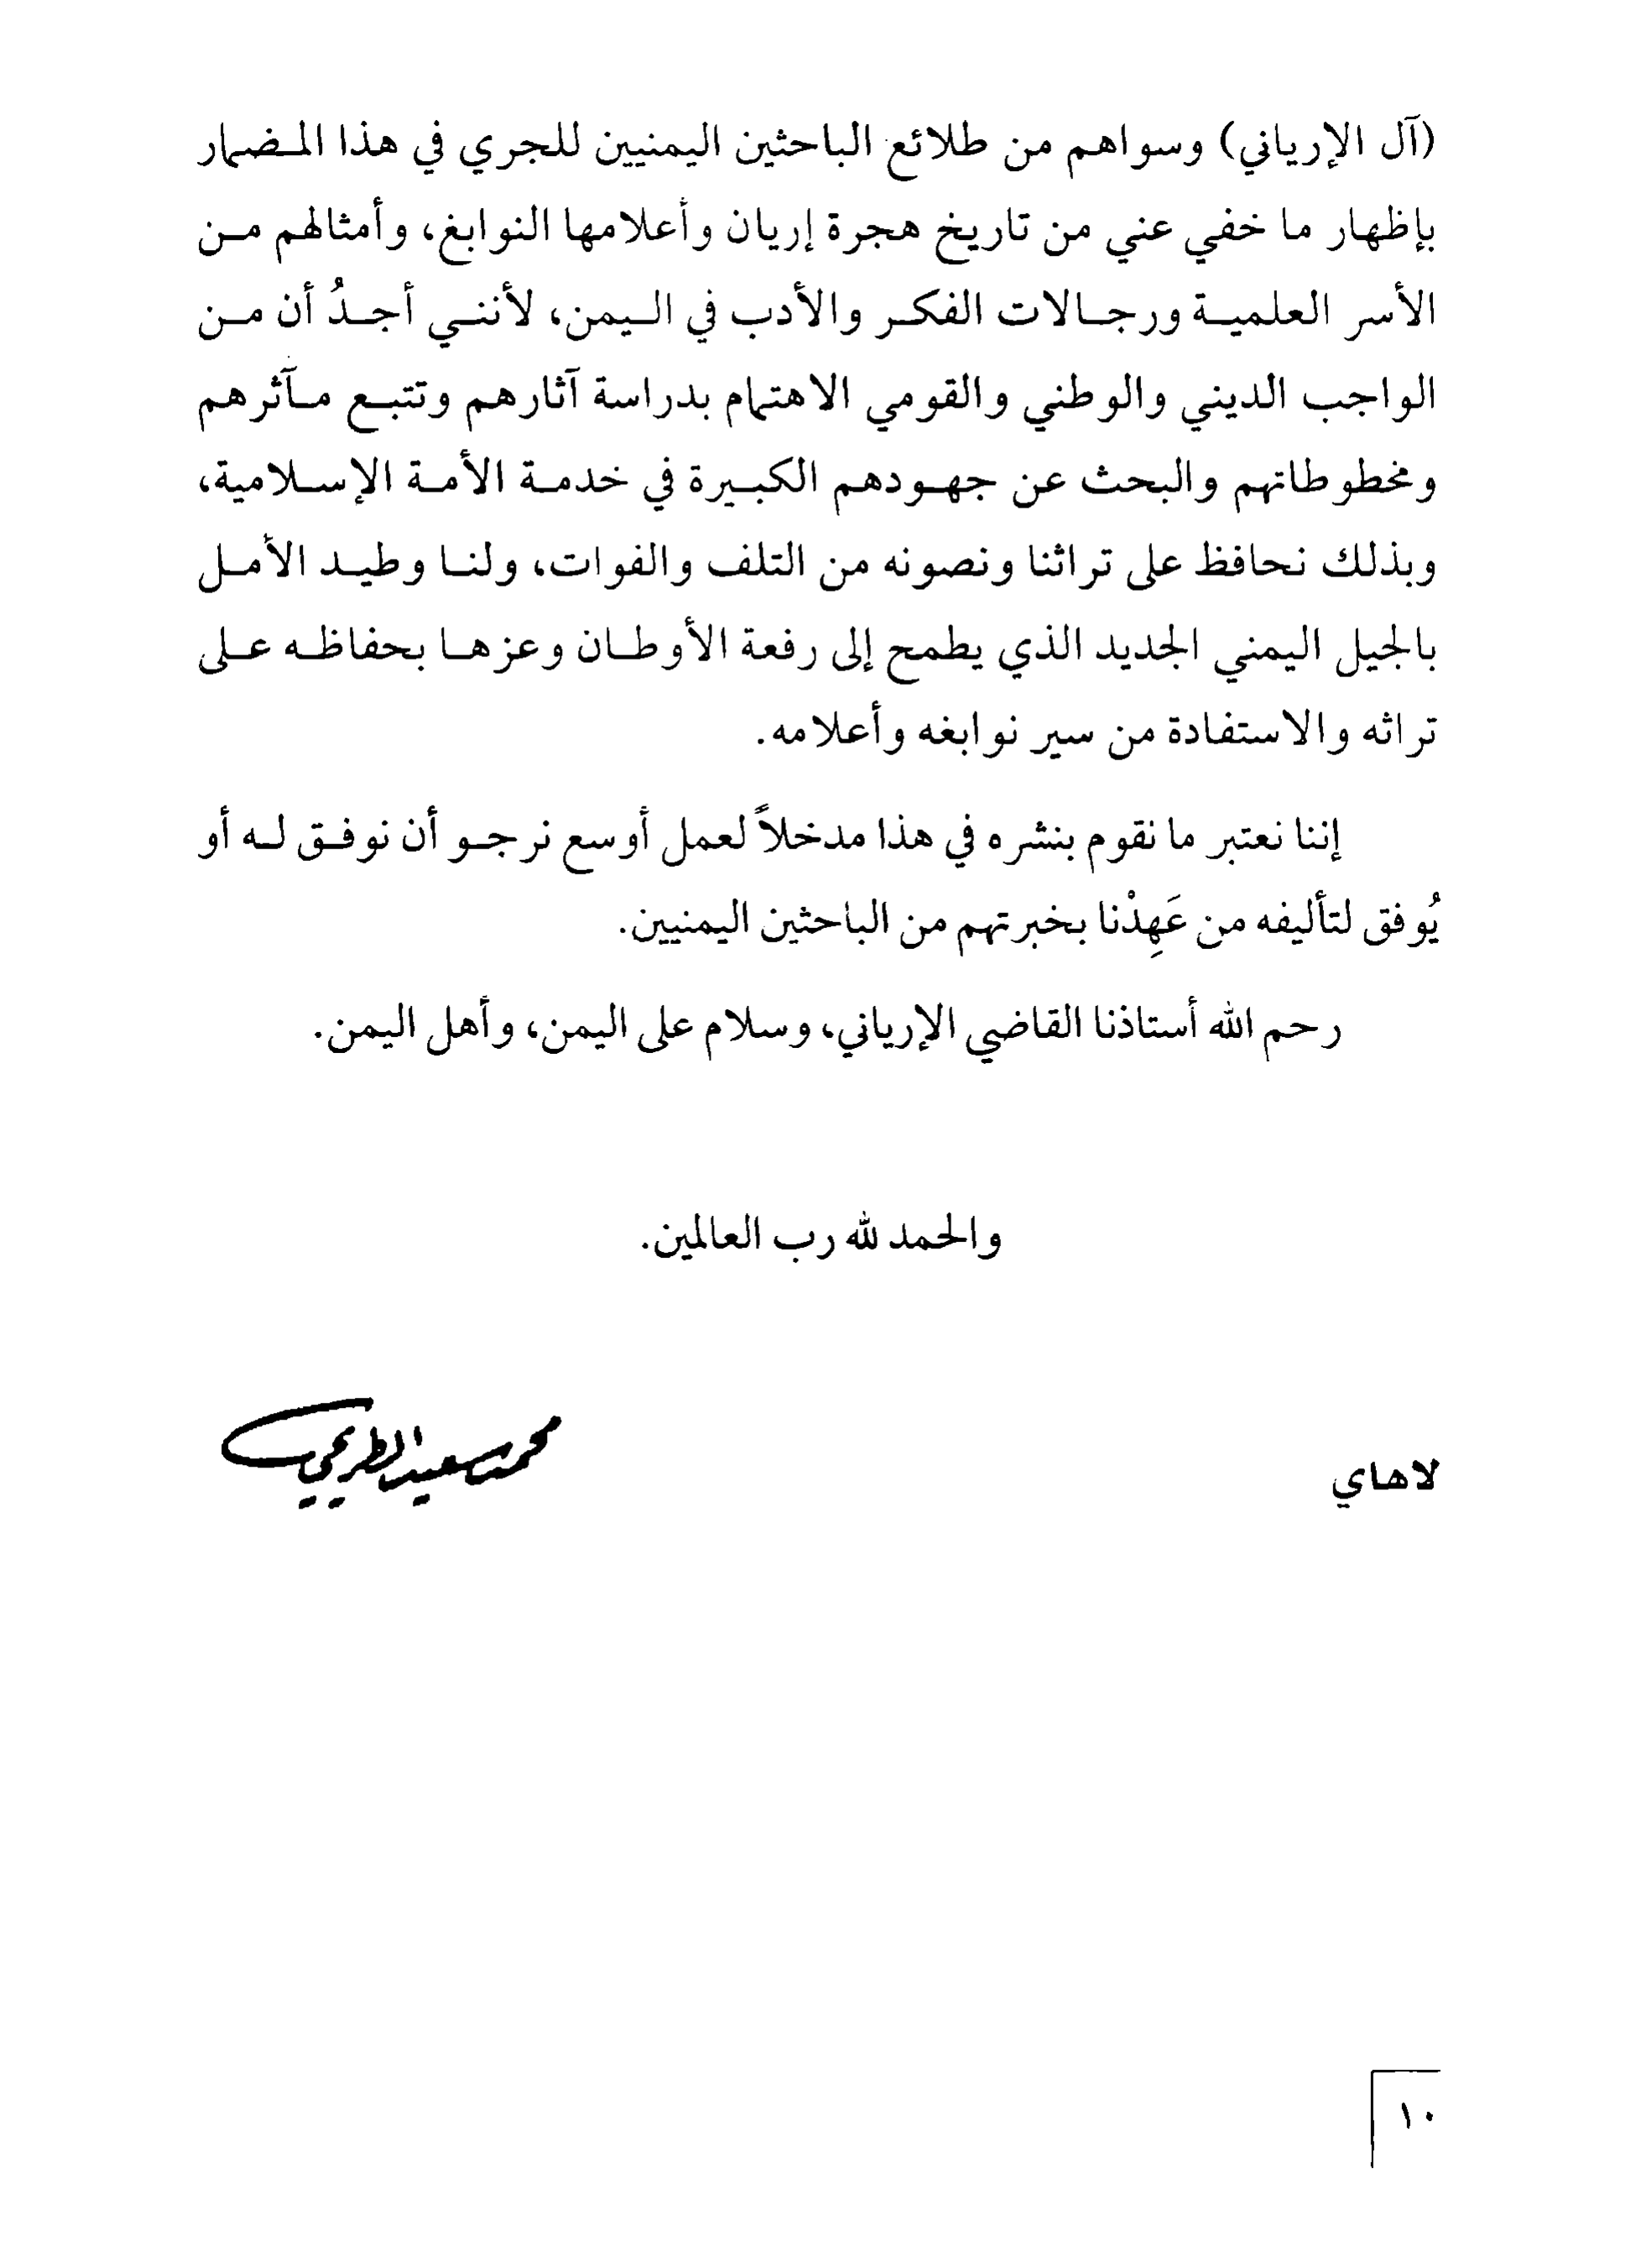 (آل الإرياني) وسواهم من طلائع الباحثين اليمنيين للجري في هذا المضمار
بإظهار ما خفي عني من تاريخ هجرة إريان وأعلامها النوابغ، وأمثالهم من
الأسر العلمية ورجالات الفكر والأدب في اليمن، لأنني أجدُ أن من
الواجب الديني والوطني والقومي الاهتمام بدراسة آثارهم وتتبع مآثرهم
ومخطوطاتهم والبحث عن جهودهم الكبيرة في خدمة الأمة الإسلامية،
وبذلك نحافظ على تراثنا ونصونه من التلف والفوات، ولنا وطيد الأمل
بالجيل اليمني الجديد الذي يطمح إلى رفعة الأوطان وعزها بحفاظه على
تراثه والاستفادة من سير نوابغه وأعلامه.
إننا نعتبر ما نقوم بنشره في هذا مدخلاً لعمل أوسع نرجو أن نوفق له أو
يُوفق لتأليفه من عَهِدْنا بخبرتهم من الباحثين اليمنيين.
رحم الله أستاذنا القاضي الإرياني، وسلام على اليمن، وأهل اليمن.
والحمد لله رب العالمين.
محمد سعيد الطريحي
لاهاي
١٠